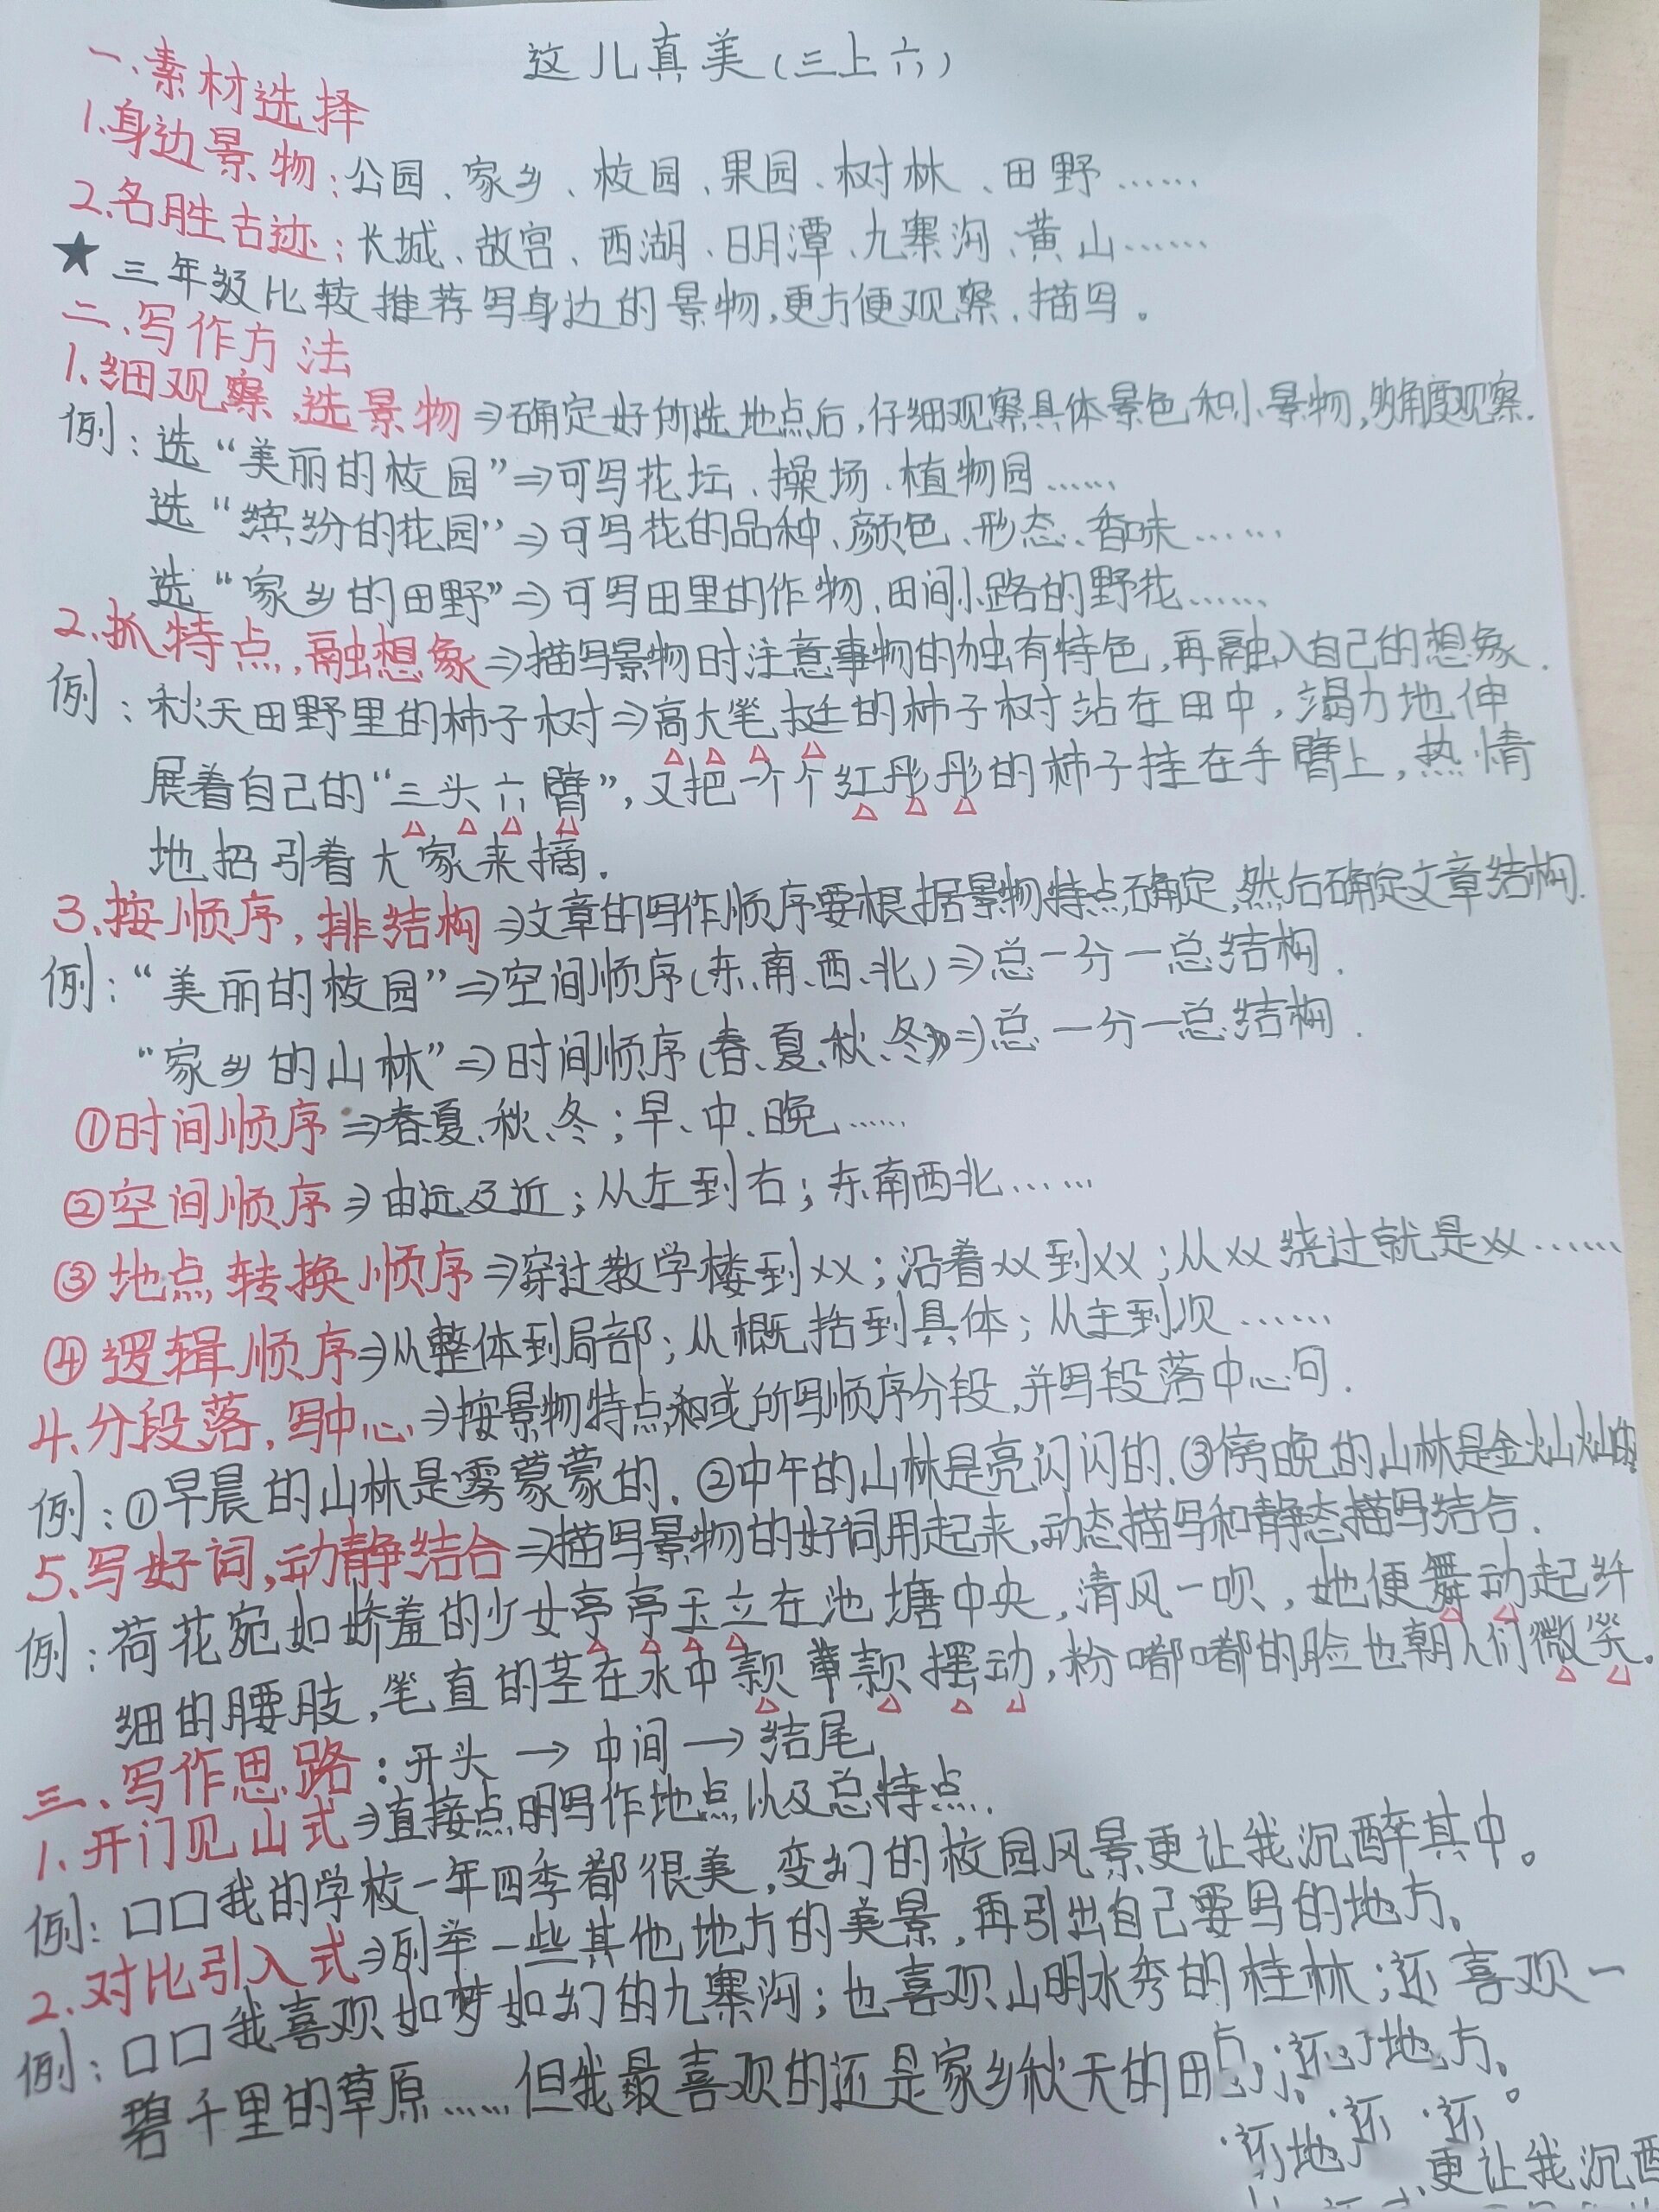 这儿真美(三上六)
一、素材选择
1.身边景物:公园、家乡、校园、果园、树林、田野……
2.名胜古迹:长城、故宫、西湖、日月潭、九寨沟、黄山……
★三年级比较推荐写身边的景物,更方便观察、描写。
二、写作方法
1.细观察,选景物⇒确定好所选地点后,仔细观察具体景色和小景物,多角度观察.
例:选“美丽的校园”⇒可写花坛、操场、植物园……
选“缤纷的花园”⇒可写花的品种、颜色、形态、香味……
选“家乡的田野”⇒可写田里的作物、田间小路的野花……
2.抓特点,融想象⇒描写景物时注意事物的独有特色,再融入自己的想象.
例:秋天田野里的柿子树⇒高大笔挺的柿子树站在田中,竭力地伸
展着自己的“三头六臂”,又把一个个红彤彤的柿子挂在手臂上,热情
地招引着大家来摘.
3.按顺序,排结构⇒文章的写作顺序要根据景物特点确定,然后确定文章结构.
例:“美丽的校园”⇒空间顺序(东、南、西、北)⇒总一分一总结构.
“家乡的山林”⇒时间顺序(春、夏、秋、冬)⇒总一分一总结构.
①时间顺序⇒春、夏、秋、冬;早、中、晚……
②空间顺序⇒由远及近;从左到右;东南西北……
③地点转换顺序⇒穿过教学楼到xx;沿着xx到xx;从xx绕过就是xx……
④逻辑顺序⇒从整体到局部;从概括到具体;从主到次……
4.分段落,写中心⇒按景物特点和或所写顺序分段,并写段落中心句.
例:①早晨的山林是雾蒙蒙的.②中午的山林是亮闪闪的.③傍晚的山林是金灿灿的
5.写好词,动静结合⇒描写景物的好词用起来,动态描写和静态描写结合.
例:荷花宛如娇羞的少女亭亭玉立在池塘中央,清风一吹,她便舞动起纤
细的腰肢,笔直的茎在水中款款摆动,粉嘟嘟的脸也朝人们微笑。
三、写作思路:开头→中间→结尾
1.开门见山式⇒直接点明写作地点以及总特点.
例:口口我的学校一年四季都很美,变幻的校园风景更让我沉醉其中。
2.对比引入式⇒列举一些其他地方的美景,再引出自己要写的地方。
例:口口我喜欢如梦如幻的九寨沟;也喜欢山明水秀的桂林;还喜欢一
碧千里的草原……但我最喜欢的还是家乡秋天的田
更让我沉